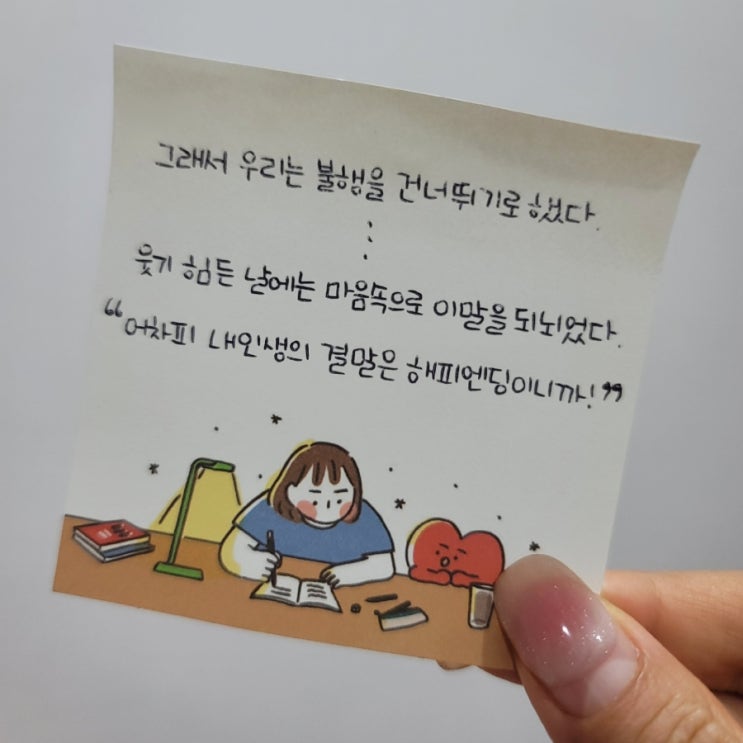 그래서 우리는 불행을 건너뛰기로 했다.
⋮
웃기 힘든 날에는 마음속으로 이말을 되뇌었다.
“어차피 내인생의 결말은 해피엔딩이니까!”